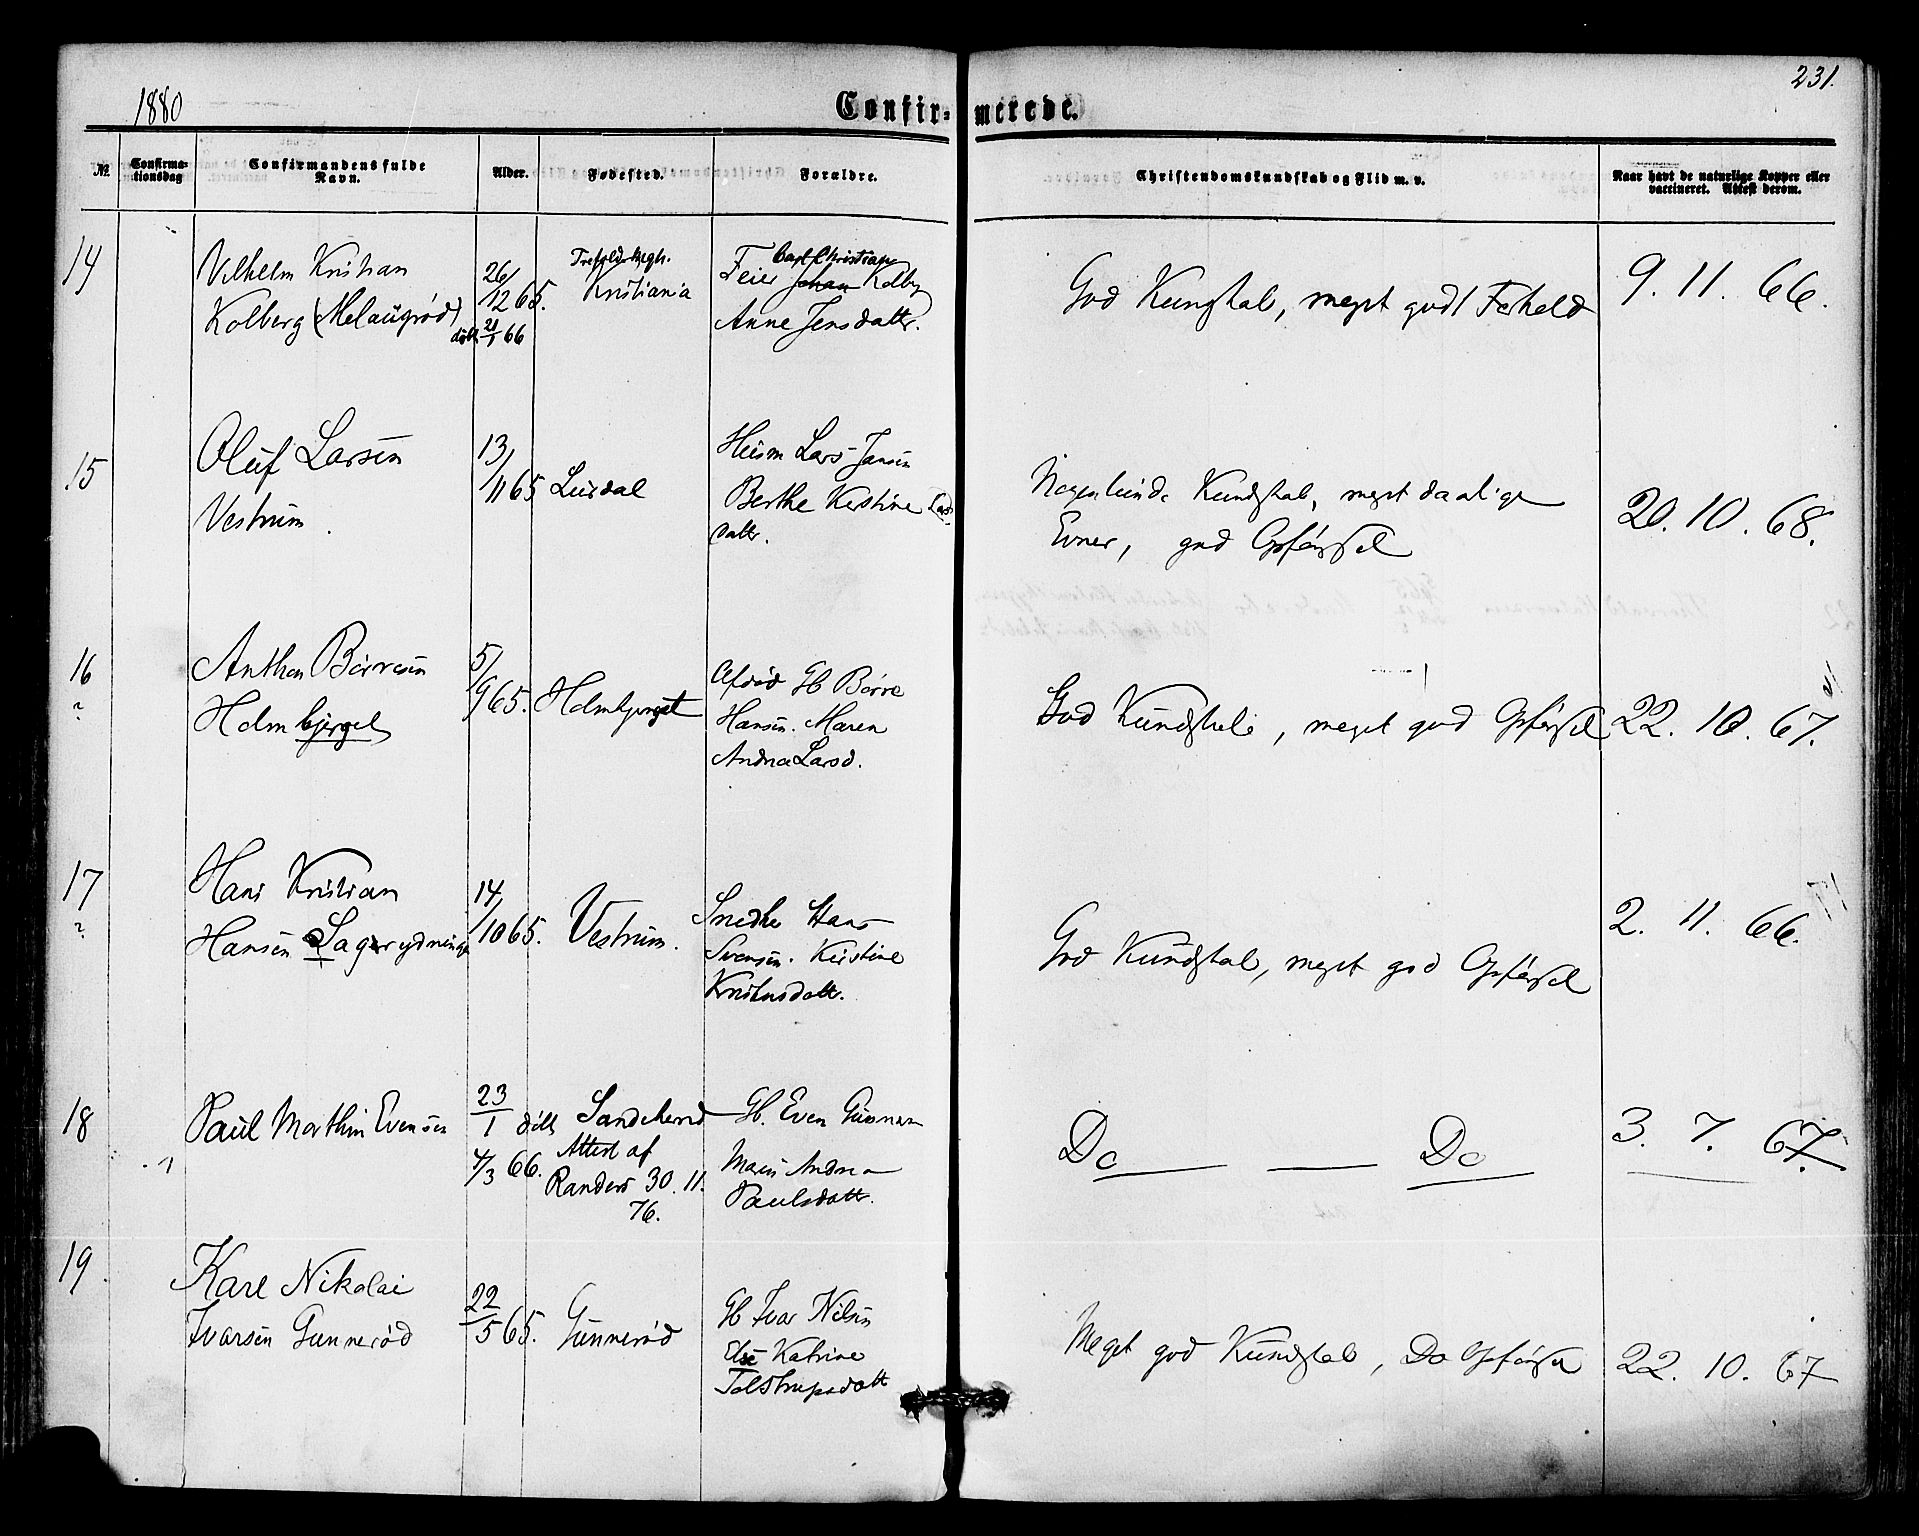 1880
Confirmerede.
231.
No.
Confirmationsdag
Confirmandens fulde Navn.
Alder.
Fødested.
Forældre.
Christendomskundskab og Flid m. v.
Naar havt de naturlige Kopper eller vaccineret. Attest derom.
14
Vilhelm Kristian
Kolberg (Melaugrød)
26/12 65.
døbt 21/1 66
Kristiania
Carl Christian
Feier Johan Kolby
Anne Jensdattr.
God Kundskab, meget godt Forhold
9. 11. 66.
15
Oluf Larsen
Vestrum.
13/11 65
Husm Lars Jansen
Berthe Kirstine Lars
dattr.
Nogenlunde Kundskab, meget daarlige
Evner, god Opførsel
20. 10. 68.
16
?
Anthon Børresen
Holmbjerget
5/9 65.
Holmbjerget
Afdød Gb Børre
Hansen. Maren
Andrea Larsd.
God Kundskab, meget god Opførsel
22. 10. 67.
17
?
Hans Kristian
Hansen Sagerydninge
14/10 65.
Vestrum.
Snedker Hans
Svensen. Kirstine
Kristensdatt.
God Kundskab, meget god Opførsel
2. 11. 66.
18
Paul Marthin Evensen
23/1 døbt
4/3 66.
Sandeherred
Attest af
Randers 30. 11.
76.
Gb. Even Gunnar
Maren Andrea
Paulsdatt.
Do Do
3. 7. 67.
19.
Karl Nikolai
Ivarsen Gunnerød
22/5 65.
Gunnerød
Gb Ivar Nilsen
Else Katrine
Tolstrupsdatt
Meget god Kundskab, Do Opførsel
22. 10. 67